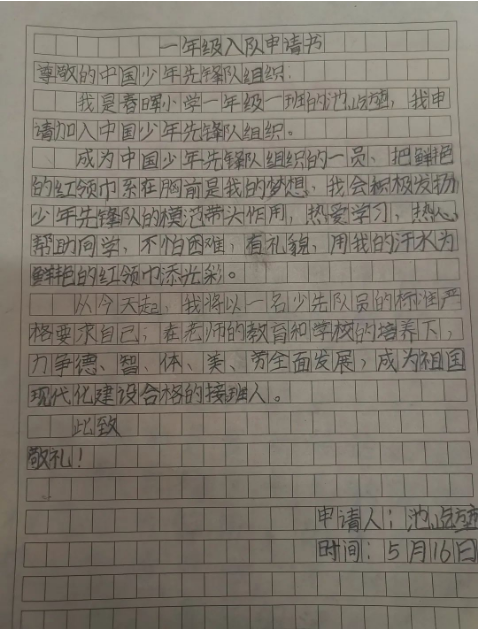 一年级入队申请书
尊敬的中国少年先锋队组织:
我是春晖小学一年级一班的池,我申
请加入中国少年先锋队组织。
成为中国少年先锋队组织的一员、把鲜艳
的红领巾系在胸前是我的梦想,我会积极发扬
少年先锋队的模范带头作用,热爱学习,热心
帮助同学,不怕困难,有礼貌,用我的汗水为
鲜艳的红领巾添光彩。
从今天起,我将以一名少先队员的标准严
格要求自己;在老师的教育和学校的培养下,
力争德、智、体、美、劳全面发展,成为祖国
现代化建设合格的接班人。
此致
敬礼!
申请人:池
时间:5月16日